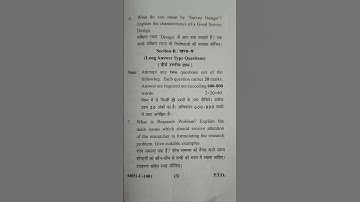 6. What do you mean by 'Survey Design'?
Explain the characteristics of a Good Survey
Design.
सर्वेक्षण रचना 'Design' से आप क्या समझते हैं? एक
अच्छी सर्वेक्षण रचना की विशेषताओं की व्याख्या कीजिए।
Section-B / खण्ड-ब
(Long Answer Type Questions)
(दीर्घ उत्तरीय प्रश्न)
Note: Attempt any two questions out of the
following. Each question carries 20 marks.
Answer are required not exceeding 600-800
words. 2×20=40
निम्न में से किन्हीं दो प्रश्नों के उत्तर दीजिए। प्रत्येक
प्रश्न 20 अंकों का है। अधिकतम 600-800 शब्दों
में उत्तर अपेक्षित है।
7. What is Research Problem? Explain the
main issues which should receive attention
of the researcher in formulating the research
problem. Give suitable examples.
शोध समस्या क्या है? शोध समस्या को तैयार करते समय
शोधार्थी को कौन-कौन से तथ्यों को ध्यान में रखना चाहिए।
उदाहरण सहित स्पष्ट कीजिए।
(3) P.T.O.